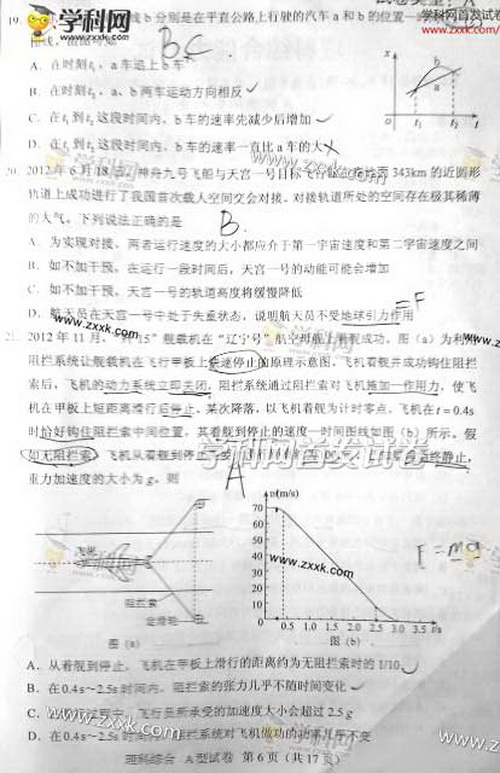 学科网
www.zxxk.com
学科网首发试卷
www.zxxk.com
19.
线b分别是在平直公路上行驶的汽车a和b的位置—
BC
A．在时刻t₁，a车追上b车
B．在时刻t₂，a、b两车运动方向相反
C．在t₁到t₂这段时间内，b车的速率先减少后增加
D．在t₁到t₂这段时间内，b车的速率一直比a车的大
x
b
a
t₁ t₂ t
20. 2012年6月18日，神舟九号飞船与天宫一号目标飞行器在 343km的近圆形
轨道上成功进行了我国首次载人空间交会对接。对接轨道所处的空间存在极其稀薄
的大气。下列说法正确的是
B.
A．为实现对接，两者运行速度的大小都应介于第一宇宙速度和第二宇宙速度之间
B．如不加干预，在运行一段时间后，天宫一号的动能可能会增加
C．如不加干预，天宫一号的轨道高度将缓慢降低
D．航天员在天宫一号中处于失重状态，说明航天员不受地球引力作用
=F
21. 2012年11月，“歼15”舰载机在“辽宁号”航空母舰上着舰成功。图（a）为利用
阻拦系统让舰载机在飞行甲板上快速停止的原理示意图。飞机着舰并成功钩住阻拦
索后，飞机的动力系统立即关闭，阻拦系统通过阻拦索对飞机施加一作用力，使飞
机在甲板上短距离滑行后停止。某次降落，以飞机着舰为计时零点，飞机在t=0.4s
时恰好钩住阻拦索中间位置，其着舰到停止的速度—时间图线如图（b）所示。假
如无阻拦索，飞机从着舰到停止
重力加速度的大小为g。则
A
飞机
阻拦索
定滑轮
图（a）
v(m/s)
80
70
60
50
40
30
20
10
0
0.5 1.0 1.5 2.0 2.5 3.0 3.5 t/s
图（b）
F=ma
A．从着舰到停止，飞机在甲板上滑行的距离约为无阻拦索时的1/10
B．在0.4s~2.5s时间内，阻拦索的张力几乎不随时间变化
C．在滑行过程中，飞行员所承受的加速度大小会超过2.5 g
D．在0.4s~2.5s时间内，阻拦系统对飞机做功的功率几乎不变
理科综合 A型试卷 第6页（共17页）